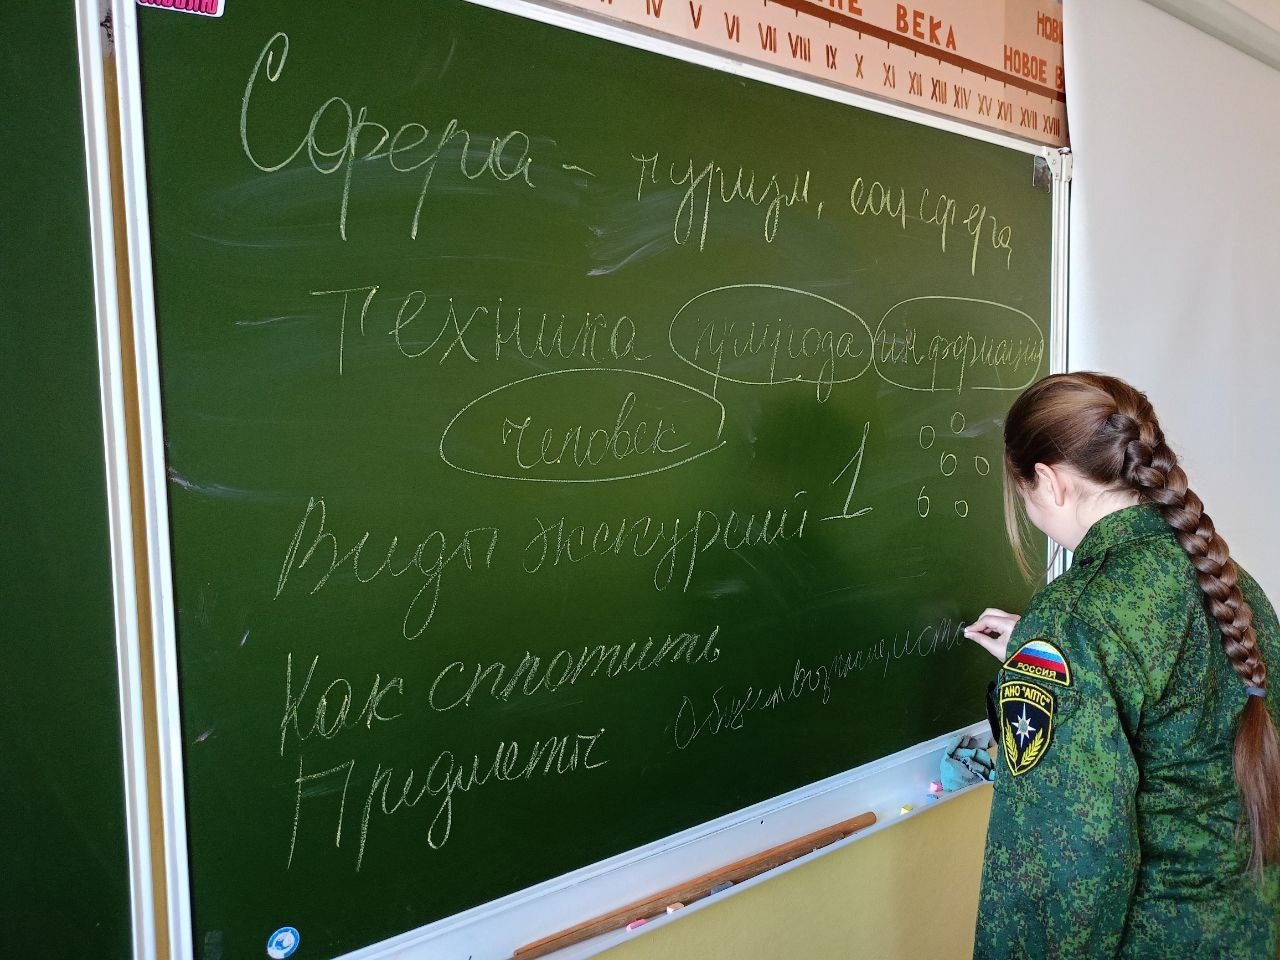 НИЕ ВЕКА
НОВОЕ В
IV V VI VII VIII IX X XI XII XIII XIV XV XVI XVII XVIII
Сфера - туризм, соц сфера
техника природа информация
человек
Виды экскурсий 1
Как сплотить
Предметы Обществознание, исто
РОССИЯ
АНО "АПТС"